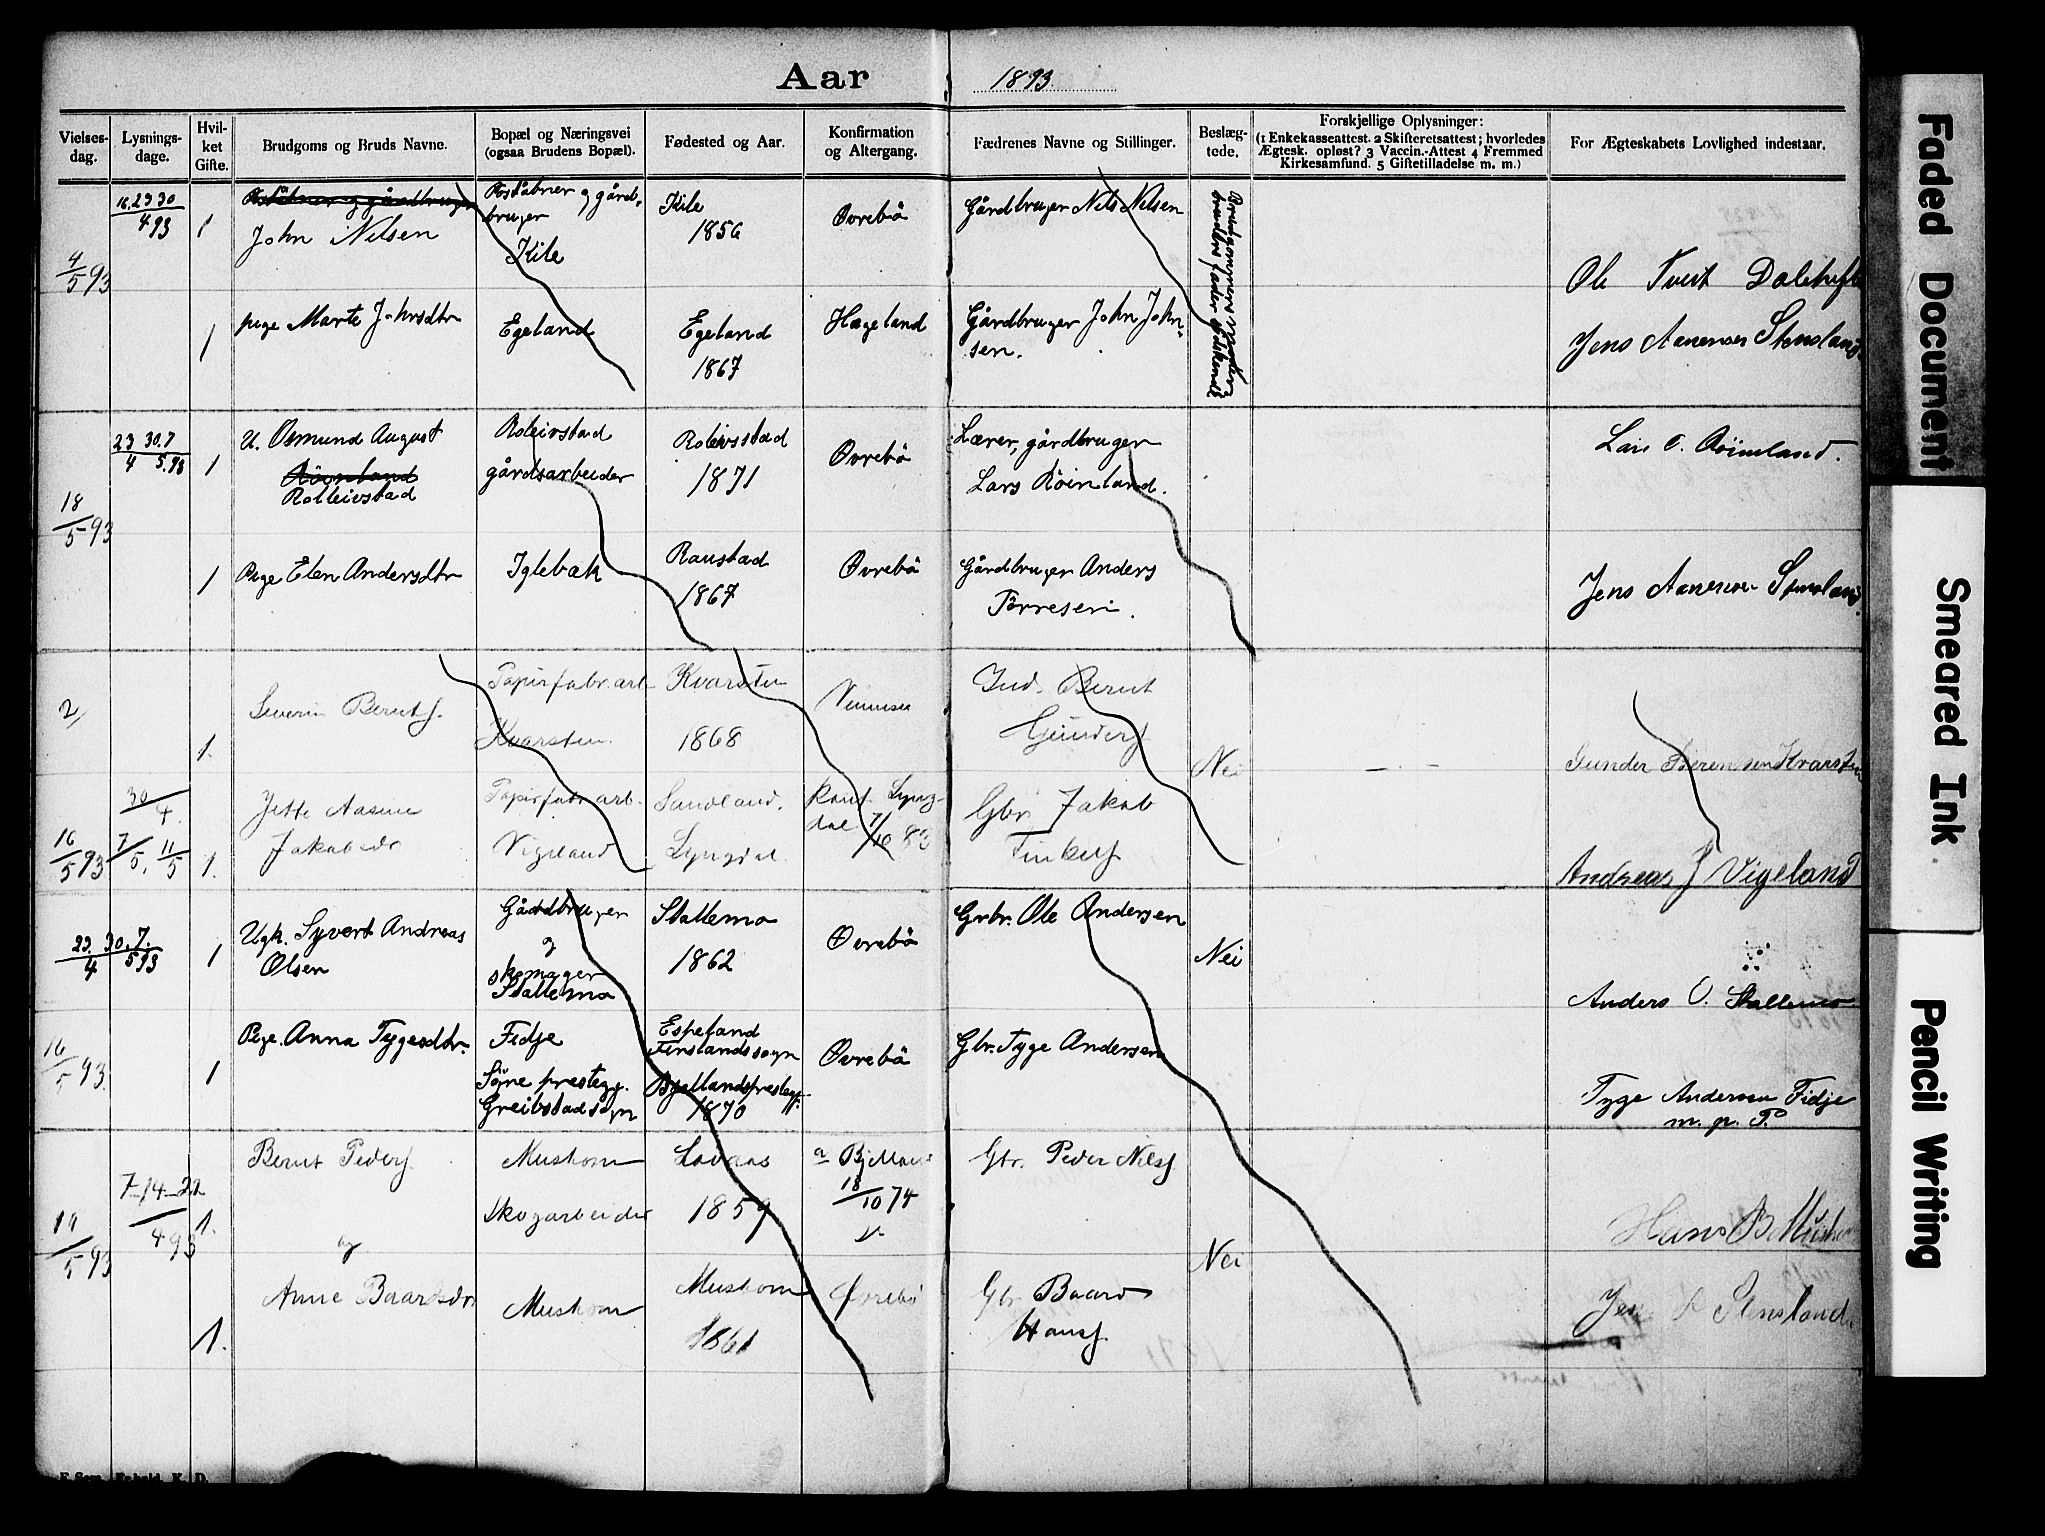 Aar 1893.
Vielses-dag. Lysnings-dage. Hvilket Gifte. Brudgoms og Bruds Navne. Bopæl og Næringsvei (ogsaa Brudens Bopæl). Fødested og Aar. Konfirmation og Altergang. Fædrenes Navne og Stillinger. Beslægtede. Forskjellige Oplysninger: (1 Enkekasseattest. 2 Skifteretsattest; hvorledes Ægtesk. opløst? 3 Vaccin.-Attest 4 Fremmed Kirkesamfund. 5 Giftetilladelse m. m.) For Ægteskabets Lovlighed indestaar.
16. 23 30
4 93
1
Postaabner og gårdbruger
John Nilsen
Postaabner og gårdbruger
Kile
Kile
1856
Øvrebö
Gårdbruger Nils Nilsen
4/5 93
Ole Tvert
1
pige Marte Johnsdtr
Egeland
Egeland
1867
Hægeland
Gårdbruger John Johnsen.
Jens Aanensen Stensland
23 30. 7
4 5. 93
1
U. Osmund August
Röinland
Rolleivstad
Roleivstad
gårdsarbeider
Roleivsstad
1871
Øvrebö
Lærer, gårdbruger
Lars Röinland.
Lars O. Röinland.
18/5 93
1
Pige Elen Andersdtr
Iglebæk
Raustad
1867
Øvrebö
Gårdbruger Anders
Törresen.
Jens Aanensen Stensland.
2/
1.
Severin Bernts.
Papirfabr. arb
Kvarsten.
Kvarsten
1868
Vennesla
Ind. Bernt
Gunders.
Nei
Gunder Berentsen Kvarsten
30/4.
16/5 93
7/5, 11/5
1.
Jette Aasine
Jakobsdr
Papirfabr. arb.
Vigeland
Sandland.
Lyngdal
Konf. Lyngdal
7/10 83
Gbr Jakob
Andreas J Vigeland
23. 30. 7.
4 5 93
1
Ugk. Syvert Andreas
Olsen
Gårdbruger
og
skomager
Stallemo
Stallemo
1862
Øvrebö
Grbr. Ole Andersen
Nei
Anders O. Stallemo
16/5 93.
1
Pige. Anna Tygesdtr.
Fidje
Sögne prestegj.
Greibstad sogn
Espeland
Finslandssogn
Bjellandsprestegj.
1870
Øvrebö
Gbr. Tyge Andersen
Tyge Andersen Fidje
m. p. P.
7-14-21
4 93
1.
Bernt Peders.
og
Mushom
Skogarbeider
1859
18/10 74
Gbr. Peder Nilss
Nei
Hans B Mushom
14/5 93
1.
Anne Baardsdr
Mushom
Mushom
1861
Øvrebö
Gbr. Baard
Hans.
Jens A Stensland.
Faded Document
Smeared Ink
Pencil Writing